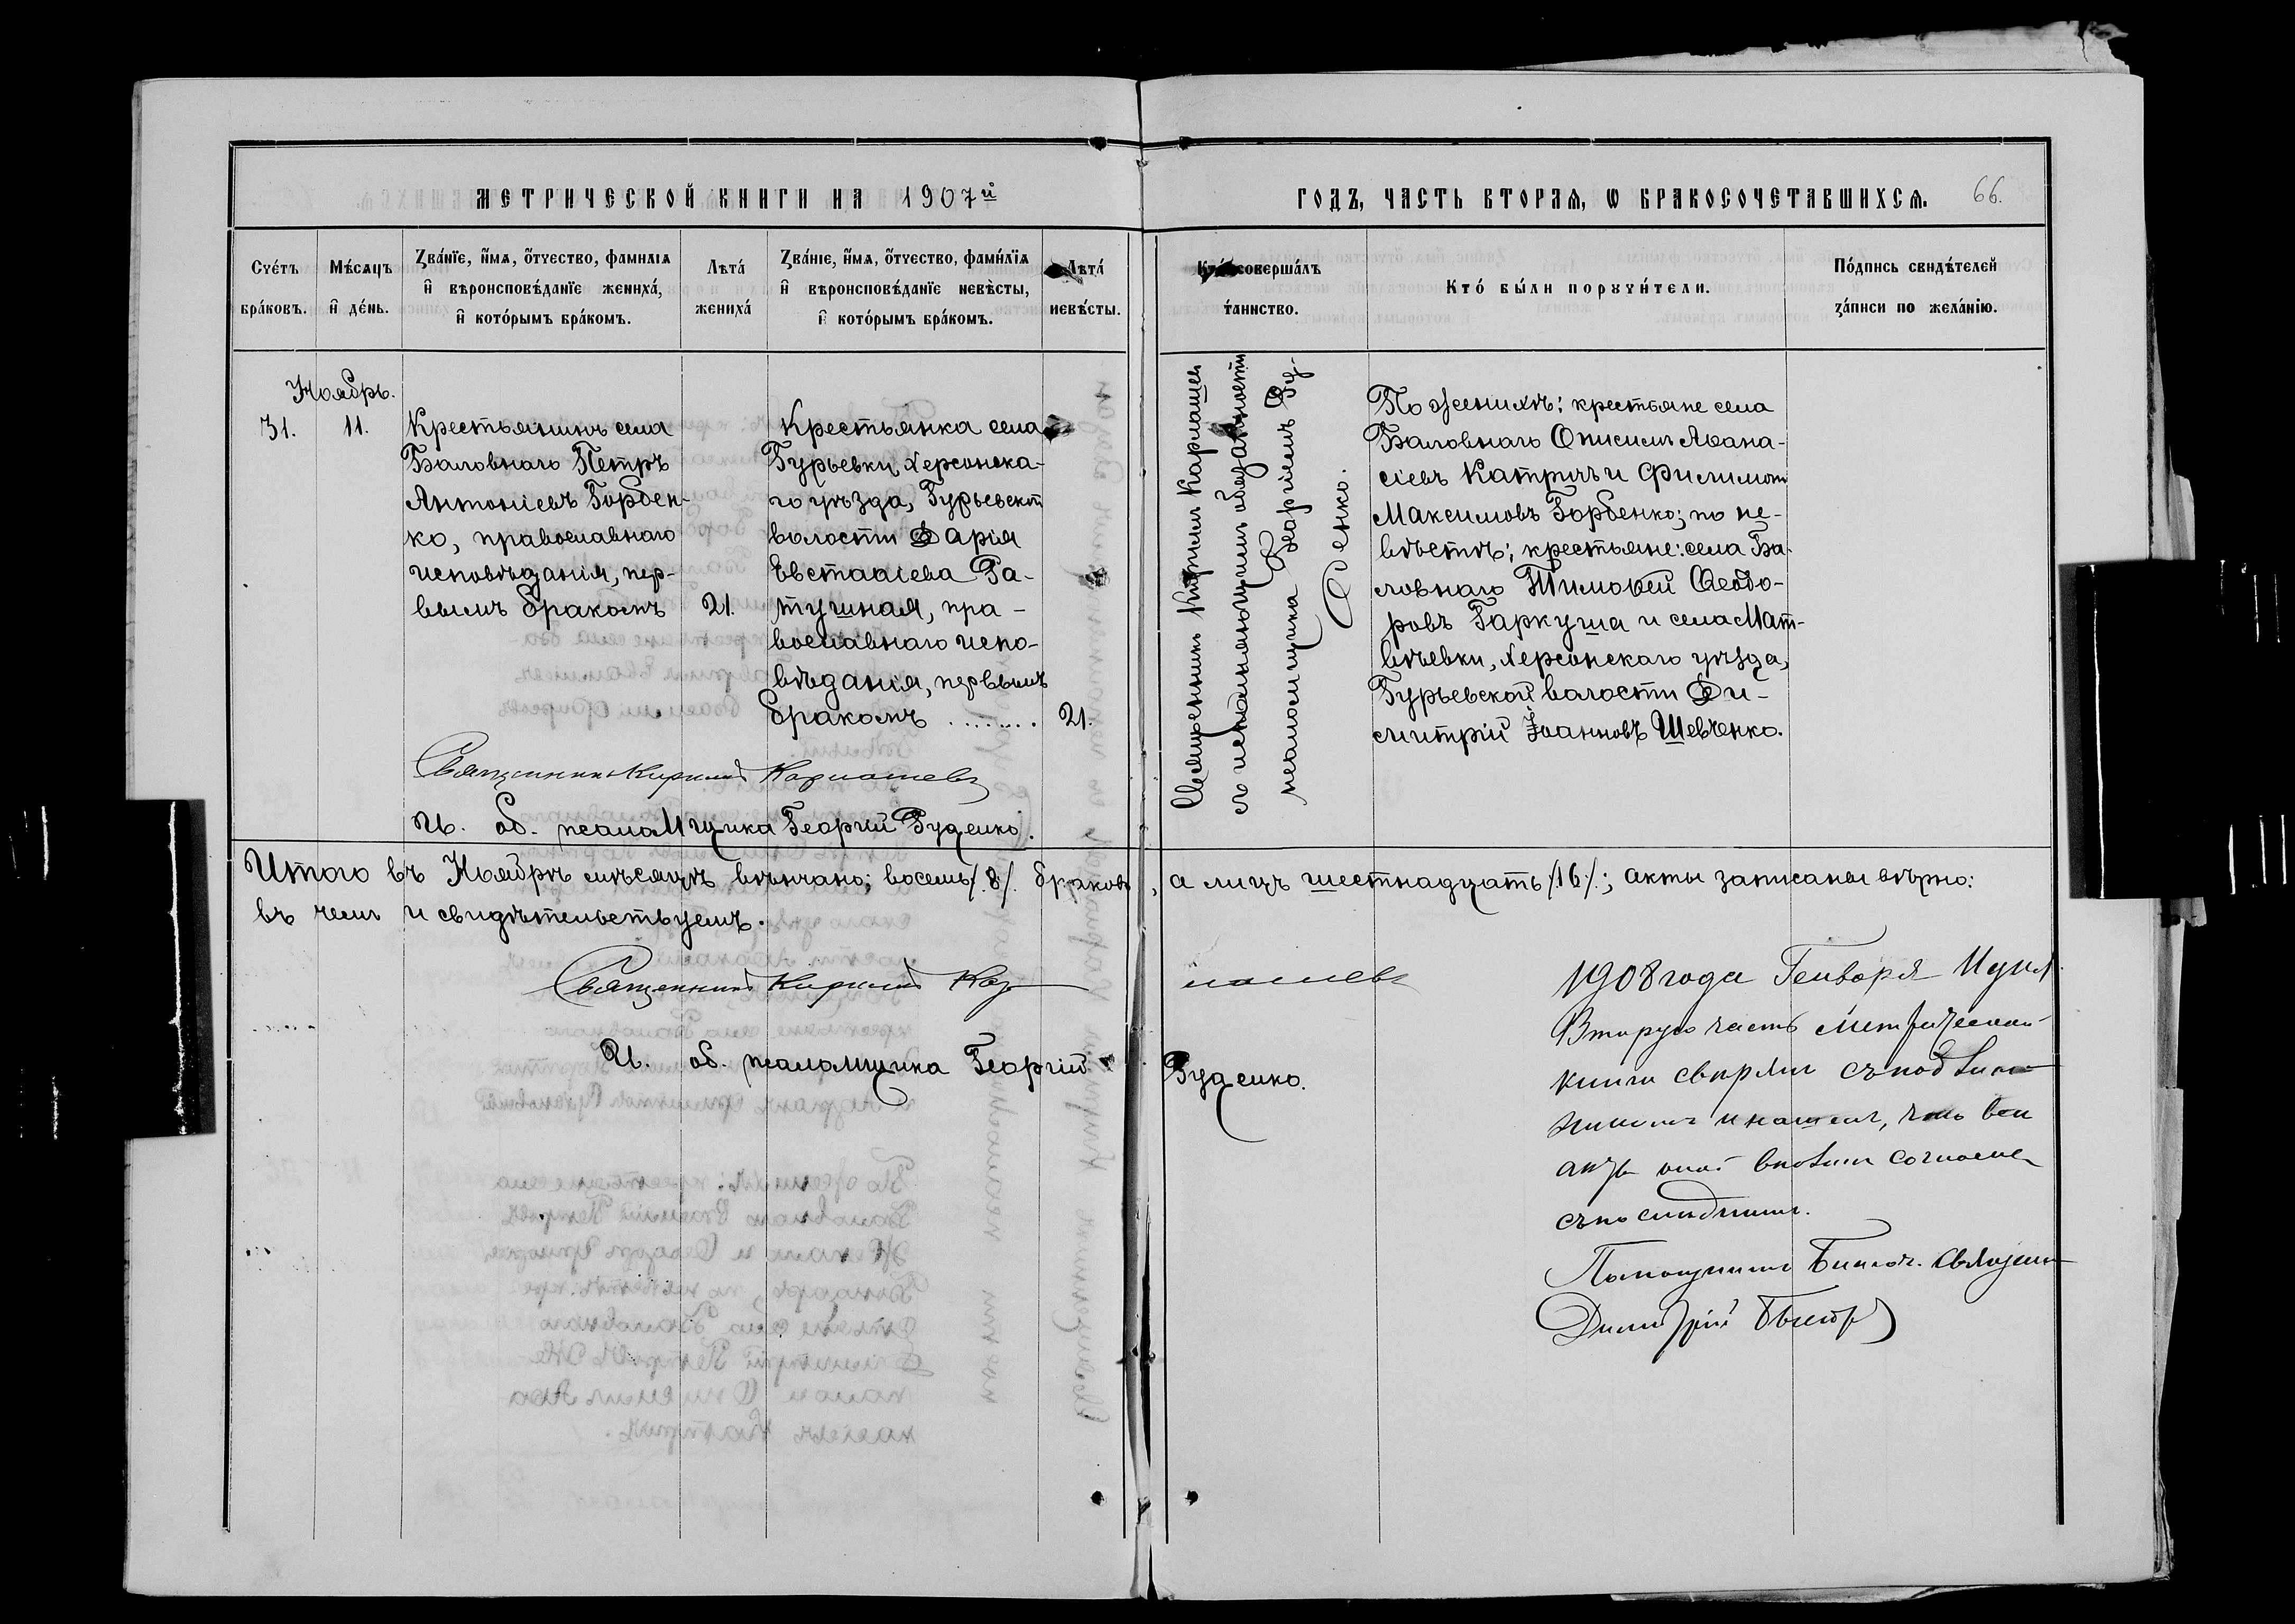 МЕТРИЧЕСКОЙ КНИГИ НА 1907й
ГОДЪ, ЧАСТЬ ВТОРАЯ, Ѡ БРАКОСОЧЕТАВШИХСЯ. 66.
Счетъ браковъ.
Мѣсяцъ и день.
Званіе, имя, отчество, фамилія
и вѣроисповѣданіе жениха,
и которымъ бракомъ.
Лѣта
жениха
Званіе, имя, отчество, фамилія
и вѣроисповѣданіе невѣсты,
и которымъ бракомъ.
Лѣта
невѣсты.
Кто совершалъ
таинство.
Кто были поручители.
Подпись свидѣтелей
записи по желанію.
Ноябрь.
31.
11.
Крестьянинъ села
Баловнаго Петръ
Антоніевъ Горбен-
ко, православнаго
исповѣданія, пер-
вымъ бракомъ
21.
Крестьянка села
Гурьевки, Херсонска-
го уѣзда, Гурьевской
волости Дарія
Евстафіева Ра-
тушная, пра-
вославнаго испо-
вѣданія, первымъ
бракомъ ........
21.
Священникъ Кириллъ Кармашевъ
съ исполняющимъ обязанности
псаломщика Георгіемъ Ру-
денко.
По женихѣ: крестьяне села
Баловнаго Онисимъ Аѳана-
сіевъ Катричъ и Филимонъ
Максимовъ Горбенко; по не-
вѣстѣ: крестьяне: села Ба-
ловнаго Тимоѳей Ѳеодо-
ровъ Гаркуша и села Мат-
вѣевки, Херсонскаго уѣзда,
Гурьевской волости Ди-
митрій Іоанновъ Шевченко.
Священникъ Кириллъ Кармашевъ
И. об. псаломщика Георгій Руденко.
Итого въ Ноябрѣ мѣсяцѣ вѣнчано; восемь /.8/. браковъ, а лицъ шестнадцать /.16/.; акты записаны вѣрно:
въ чемъ и свидѣтельствуемъ.
Священникъ Кириллъ Кармашевъ
И. об. псаломщика Георгій Руденко.
1908 года Генваря
Вторую часть метрической
книги свѣрялъ съ подлин-
никомъ и нашелъ, что всѣ
акты оной вполнѣ согласны
съ послѣднимъ.
Помощникъ Благоч. Священ.
Димитрій